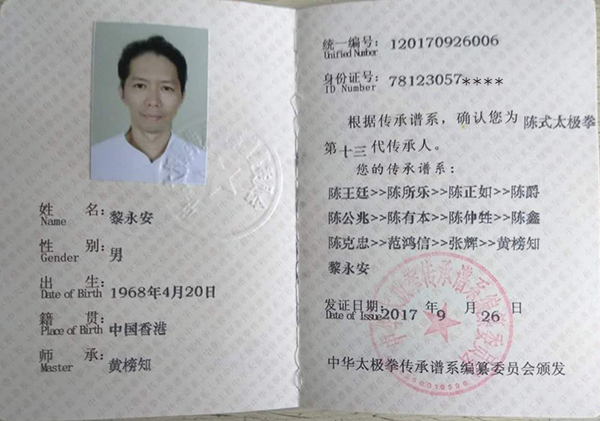 姓 名：黎永安
Name
性 别：男
Gender
出 生：1968年4月20日
Date of Birth
籍 贯：中国香港
Place of Birth
师 承：黄榜知
Master
统一编号：120170926006
Unified Number
身份证号：78123057****
ID Number
根据传承谱系，确认您为 陈式太极拳
第 十三 代传承人。
您的传承谱系：
陈王廷>>陈所乐>>陈正如>>陈爵
陈公兆>>陈有本>>陈仲甡>>陈鑫
陈克忠>>范鸿信>>张辉>>黄榜知
黎永安
发证日期：2017 年 9 月 26 日
Date of Issue
中华太极拳传承谱系编纂委员会颁发